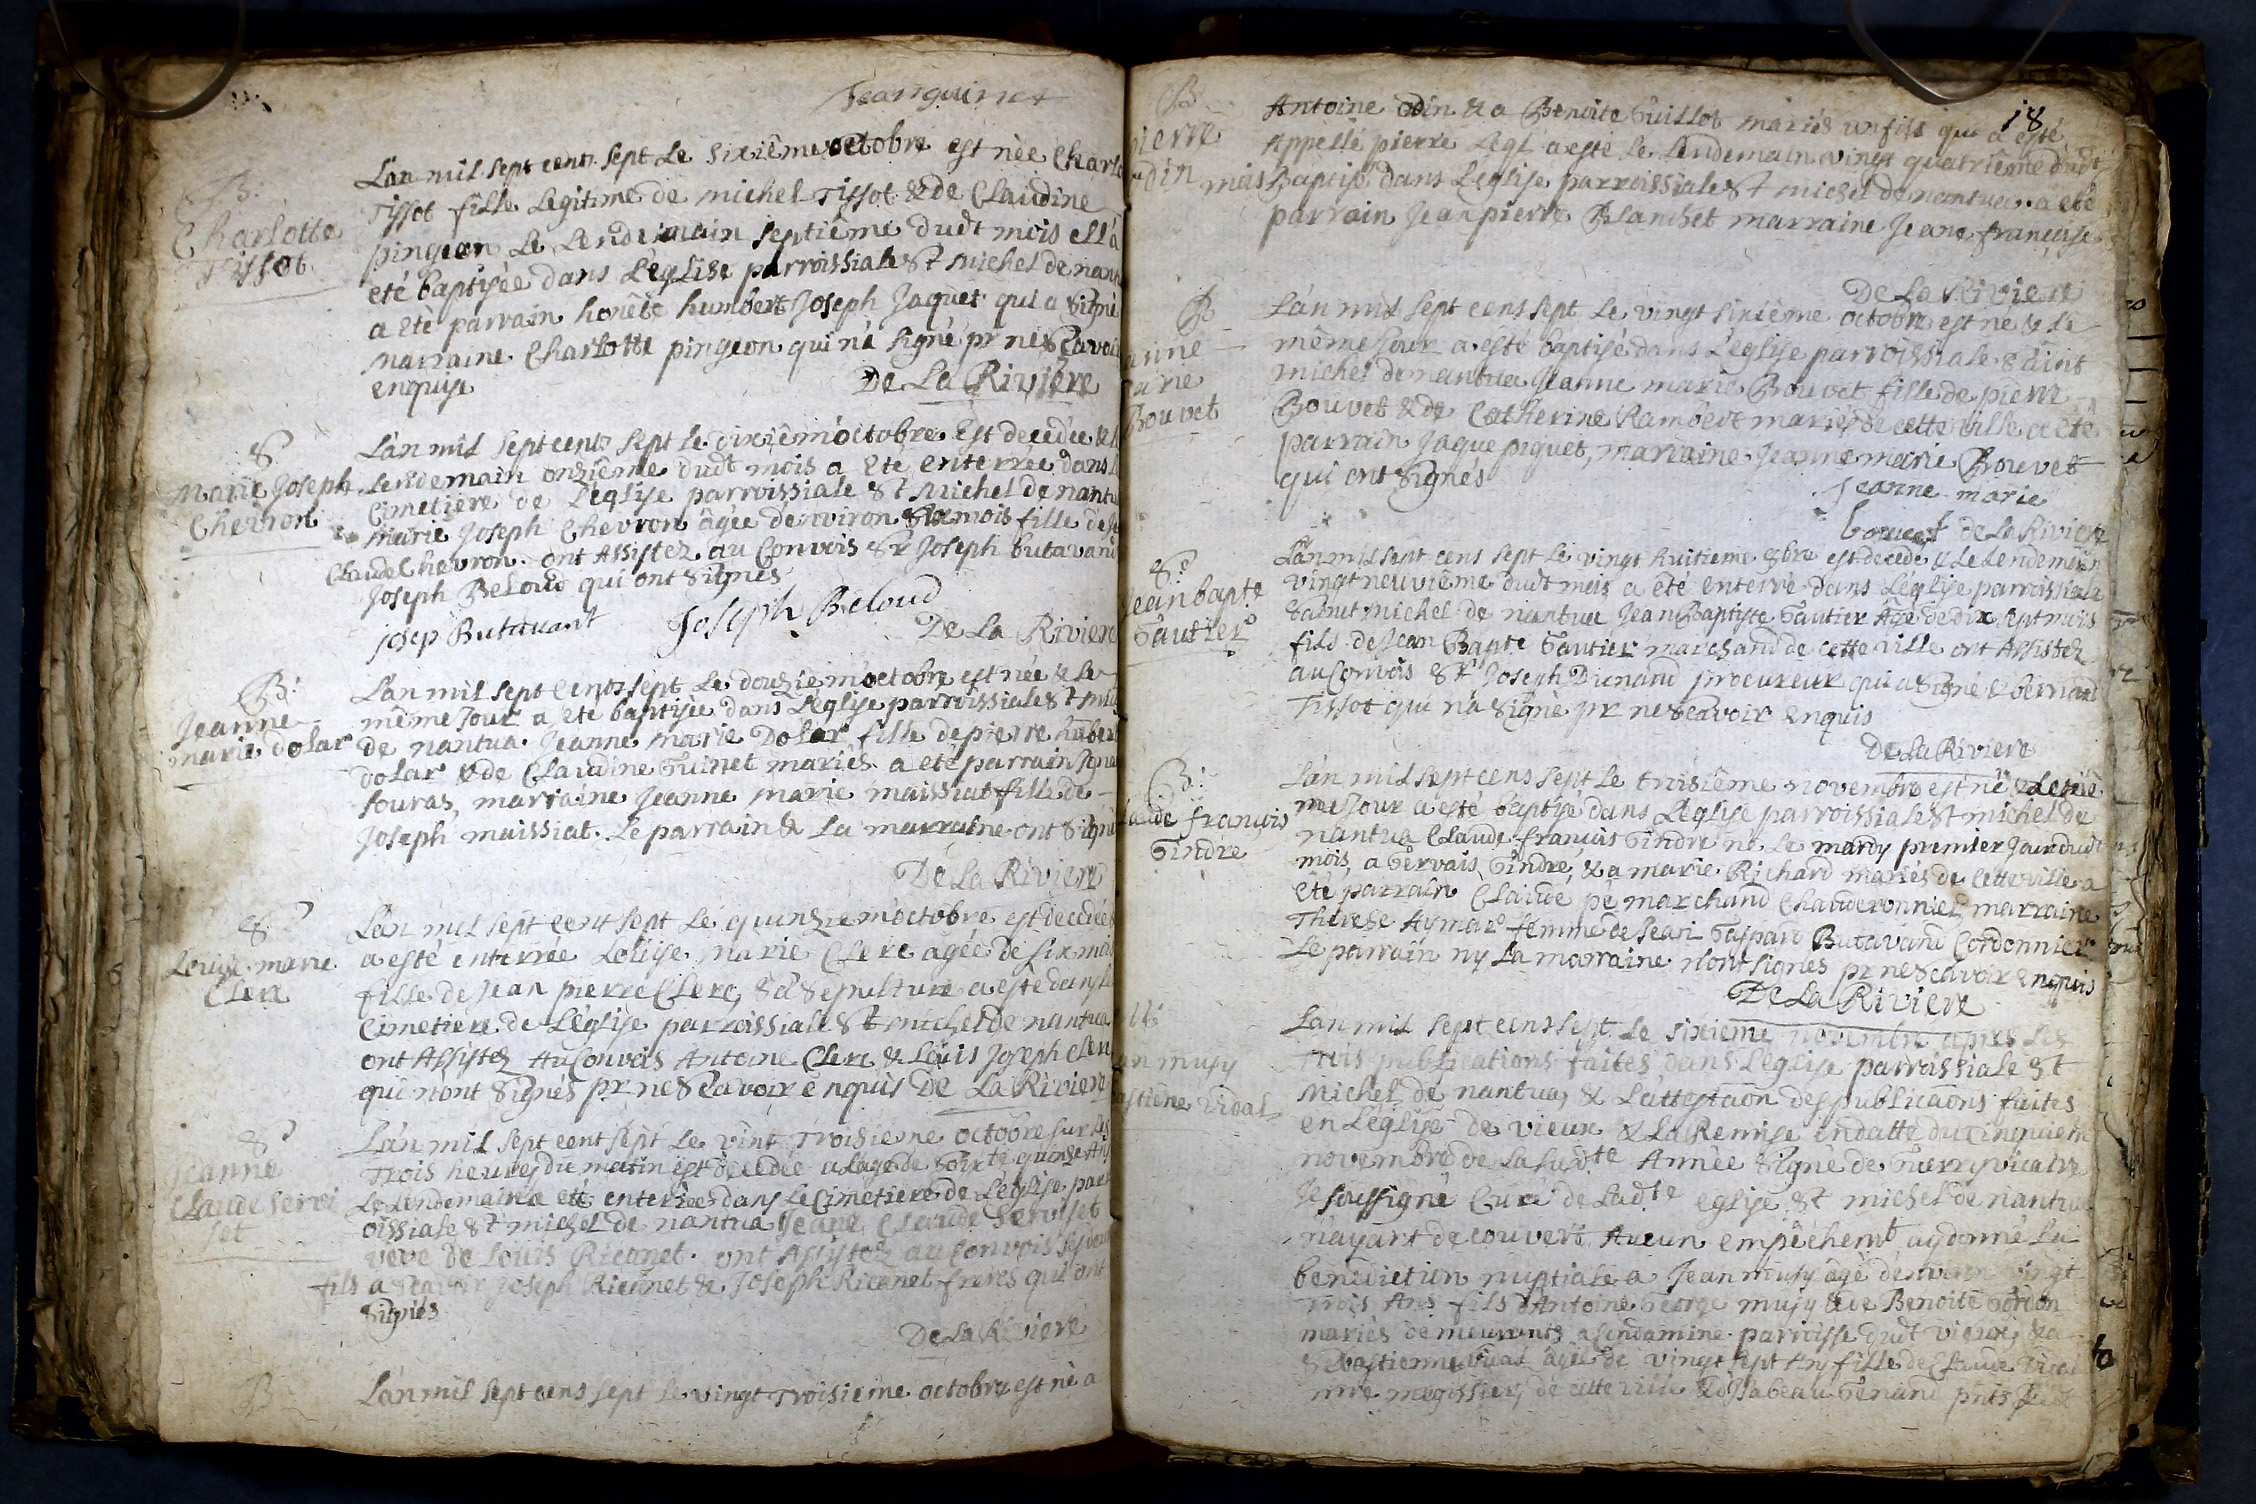 Jean guinet
B:
Charlotte
Tissot
L'an mil sept cents sept Le sixiême octobre est née Charlo
Tissot fille Legitime de michel Tissot & de Claudine
pingeon Le Lendemain septiême dudt mois ell'a
eté baptisée dans L'eglise parroissiale St michel de nant
a eté parrain honête humbert Joseph Jaquet qui a signé
marraine Charlotte pingeon qui n'é signé pr ne scavoi
enquise De La Riviere
S
Marie Joseph
Chevron
L'an mil sept cents sept le dixiêm'octobre Est decedée & l
Lendemain onziême dudt mois a eté enterrée dans l
Cimetiere de L'eglise parroissiale St michel de nantu
marie Joseph Chevron âgée denviron six mois fille de
Claude Chevron. ont Assistez au Convois Sr Joseph butavand
Joseph Beloud qui ont signés
josep Butavant Joseph Beloud
De La Riviere
B:
Jeanne
marie dolar
L'an mil sept cents sept Le douziem'octobre est née & le
même Jour a eté baptisée dans L'église parroissiale St mic
de nantua Jeanne marie Dolar fille de pierre huber
dolar & de Claudine Guinet mariés a eté parrain
fouras, marraine Jeanne marie maissiat fille de
Joseph maissiat. Le parrain & La marraine ont signé
De La Riviere
S
Louise marie
Clerc
L'an mil sept cent sept Le quinziem'octobre est decedée
a esté enterrée Loüise marie Clerc agée de six moi
fille de Jean pierre Clerc, sa sepulture a esté dans le
Cimetiere de L'église parroissiale St michel de nantua
ont Assistez Au Convois Antoine Clerc & Loüis Joseph Cler
qui n'ont signés pr ne scavoir enquis De La Riviere
S
Jeanne
Claude servi
set
L'an mil sept cent sept Le vint Troisieme octobre sur les
Trois heures du matin est decedée a l'age de soixte quinze Ans
Le Lendemain a eté enterrée dans Le Cimetiere de L'eglise parr
oissiale St michel de nantua Jeane Claude Serviset
veve de Loüis Ricanet. ont Assistez au Convois ses deux
fils a scavoir Joseph Ricanet & Joseph Ricanet freres qui ont
signés
De La Riviere
B
L'an mil sept cens sept le vingt Troisieme octobre est né a
18
B
pierre
odin
Antoine odin & a Benoite Guillot mariés un fils qui a esté
Appellé pierre Leql a esté Le Lendemain vingt quatriême dudt
mois Baptisé dans L'eglise parroissiale St michel de nantua. a eté
parrain Jean pierre Blanchet marraine Jeane françoise
De La Riviere
B
anne
arie
Bouvet
L'an mil sept cens sept Le vingt sixiême octobre est né & Le
même Jour a esté baptisé dans L'église parroissiale saint
michel de nantua Jeanne marie Bouvet fille de pierre
Bouvet & de Catherine Rambert mariés de cette ville a eté
parrain Jaque piquet, marraine Jeanne marie Bouvet
qui ont signés
Jeanne marie
bouvet de La Riviere
S
Jean bapte
Gautier
L'an mil sept cens sept Le vingt huitieme 8bre est decedé & Le Lendemain
vingt neuviême dudt mois a eté enterré dans L'église parroissiale
saint michel de nantua Jean Baptiste Gautier Agé de dix sept mois
fils de Jean Bapte Gautier marchand de cette ville ont Assistez
au Convois Sr Joseph Dunand procureur qui a signé & bernard
Tissot qui n'a signé pr ne scavoir enquis
De La Riviere
B:
laude francois
Gindre
L'an mil sept cens sept Le troisiême novembre est né & Le
me Jour a esté baptisé dans L'église parroissiale St michel de
nantua Claude francois Gindre né Le mardy premier Jour dudt
mois, a Gervais Gindre, & a marie Richard mariés de cette ville a
eté parrain Claude pé marchand Chauderonnier, marraine
Therese Aymar femme de Jean Gaspard Butavand Cordonnier
Le parrain ny La marraine n'ont signés pr ne scavoir enquis
De La Riviere
an musy
astiene Vidal
L'an mil sept cens sept Le sixieme novembre apres Les
trois publications faites dans L'eglise parroissiale St
Michel de nantua, & L'attestaon des publicaons faites
en L'eglise de vieux & La Remise en datte du Cinquieme
novembre de La susdte Année signé de Guerry vicaire
Je soussigné Curé de Ladte eglise St michel de nantua
n'ayant decouvert Aucun empêchemt ay donné La
benediction nuptiale a Jean musy agé d'environ vingt
trois Ans fils d'Antoine George musy & de Benoite
mariés demeurants parroisse dudt vieux, & a
Sebastienne Vidal agée de vingt sept Ans fille de Claude Vidal
mre megissier, de cette ville & d'Isabeau Genand pnts